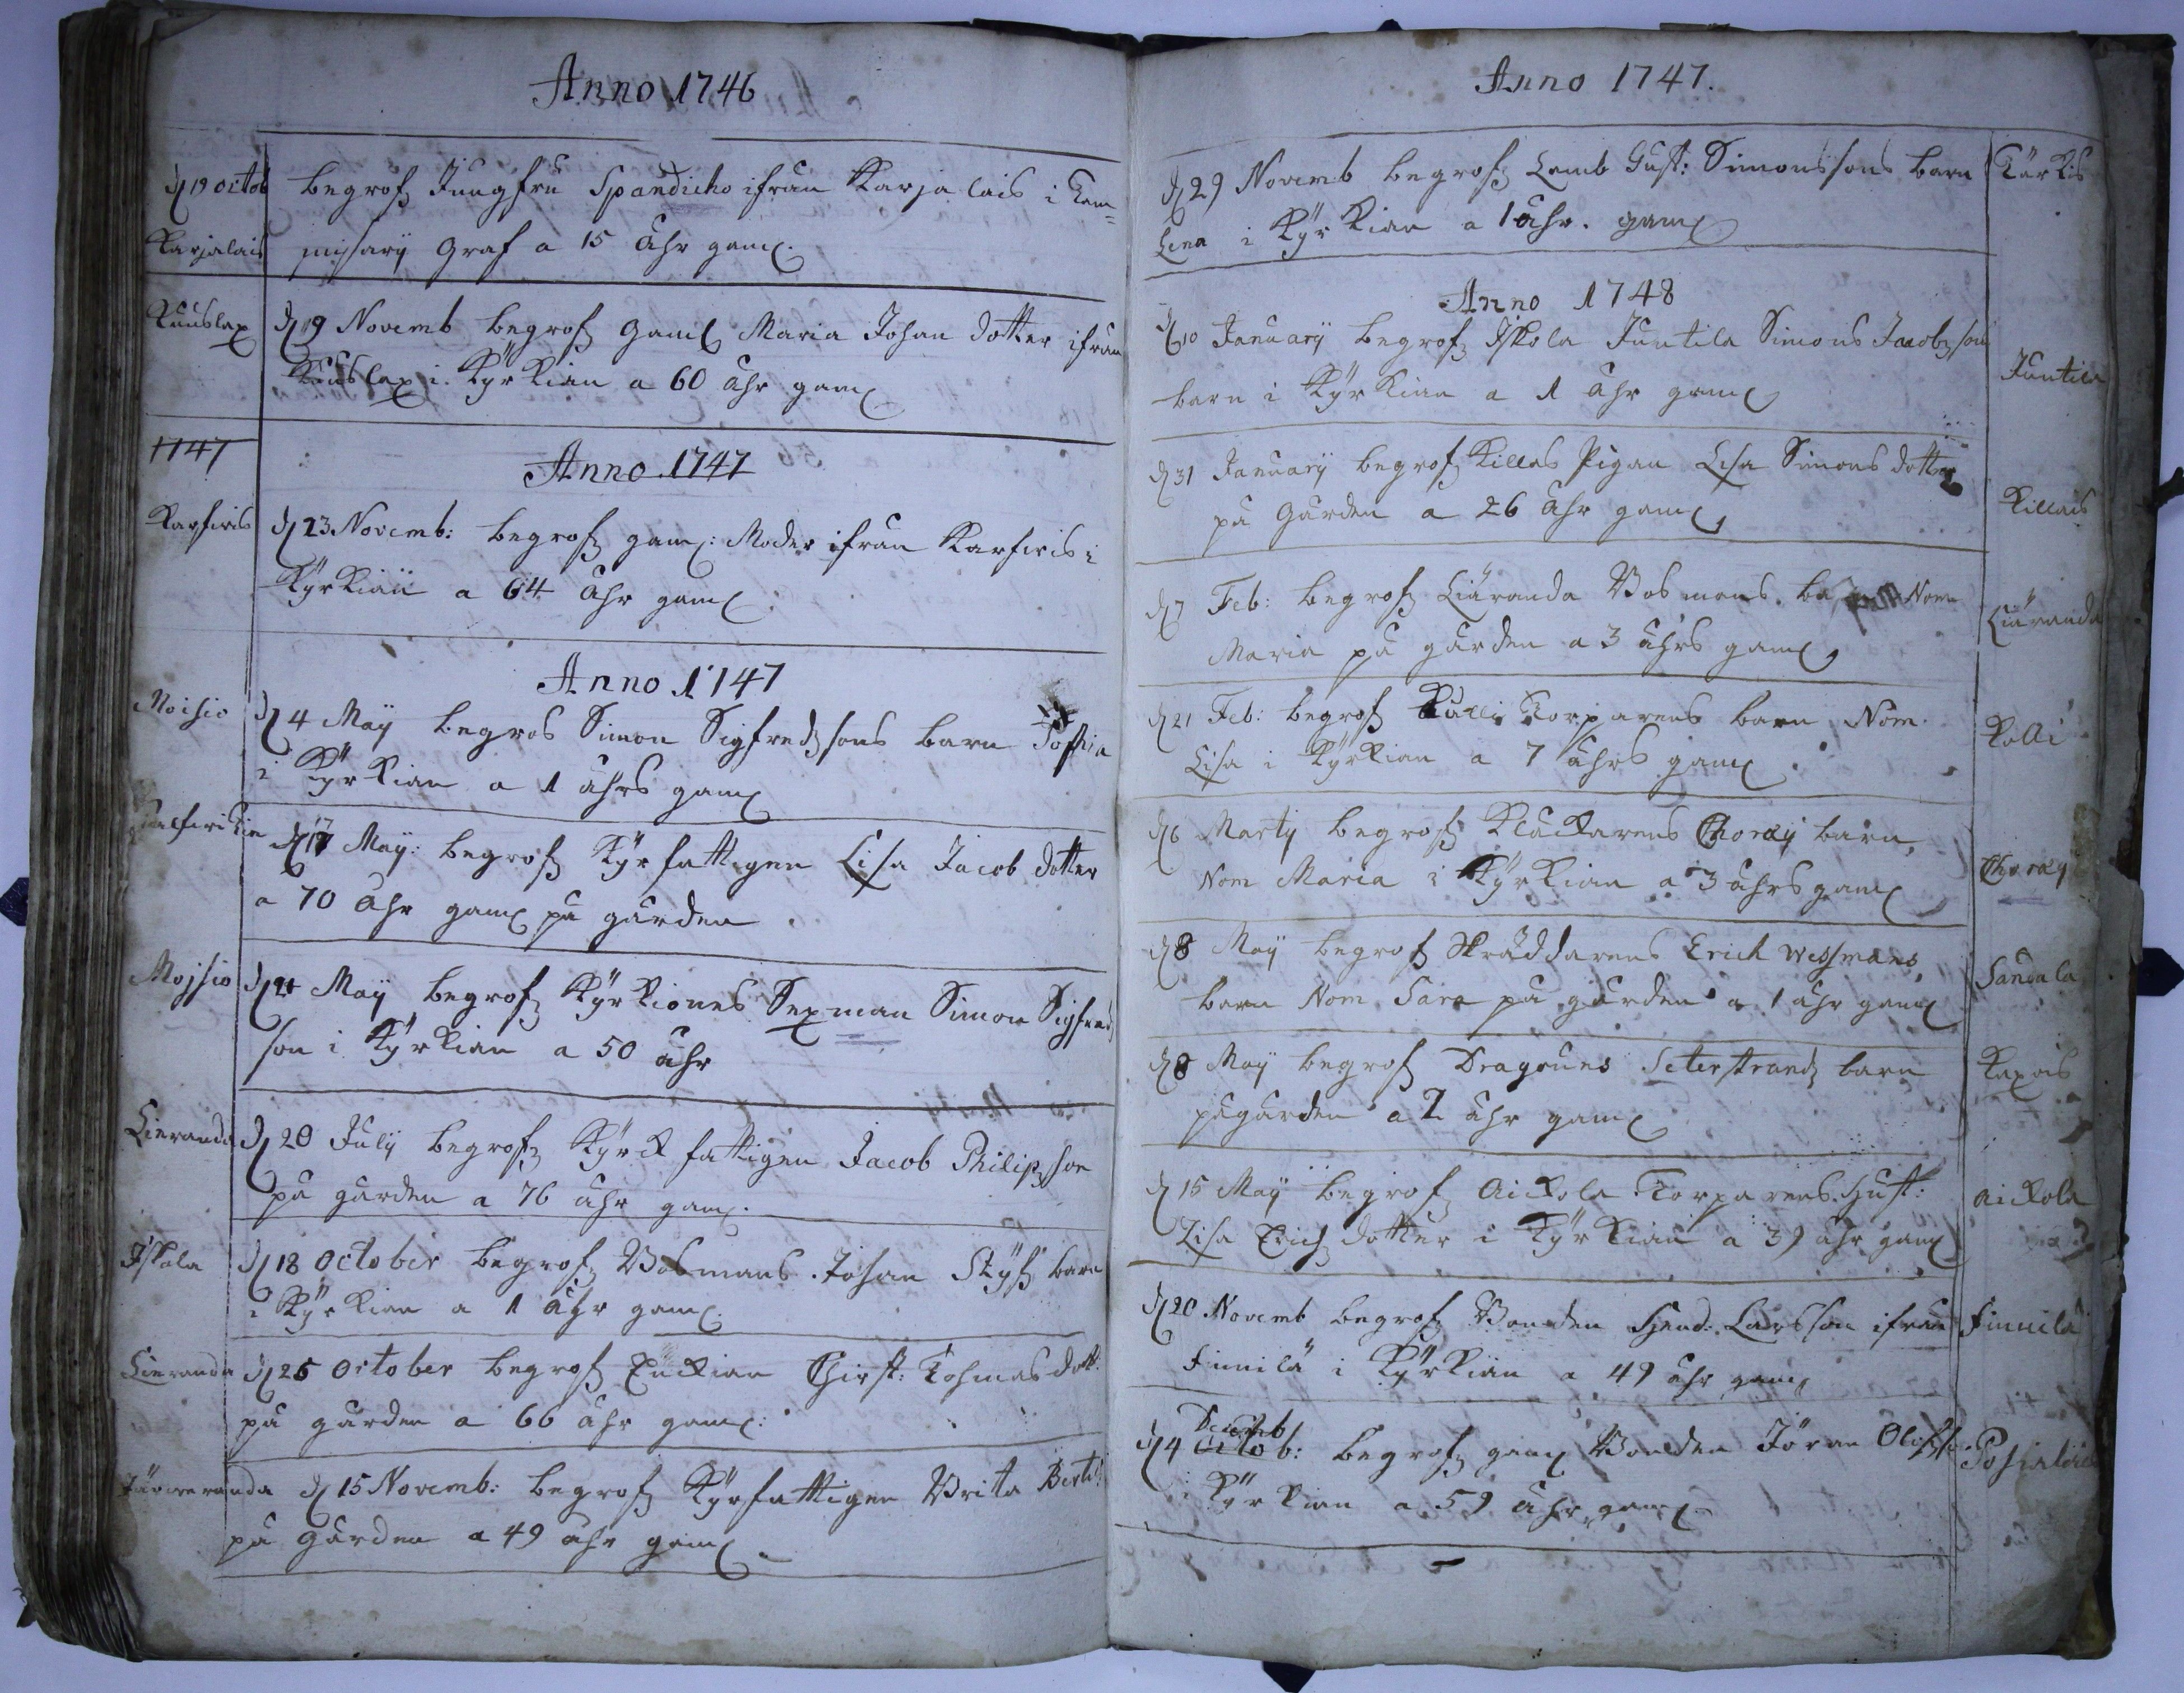 Anno 1746
d 19 octob begrofz Jungfru Spandicho ifrån Karjalais i Com=
Karjalais misarÿ Graf a 15 åhr gam:
Kuuslax d 9 Novemb begrofz gaml Maria Johan dotter ifrån
Kuuslax i Kÿrkian a 60 åhr gaml
1747
Anno 1747
Karfwis d 23 Novemb: begrofz gam: Moder ifrån Karfwis i
Kÿrkian a 64 åhr gaml
Anno 1747
Moisio d 4 Maÿ begros Simon Sigfredzsons barn Sophia
i Kÿrkian a 1 åhrs gaml
d 17 Maÿ: begrofz Kÿrfattigen Lisa Jacob dotter
a 70 åhr gaml på gården
Mojsio d 21 Maÿ begrofz Kÿrkiones Sexman Simon Sigfredz
son i Kÿrkian a 50 åhr
Lieranda d 20 Julÿ begrofz Kÿrk fattigen Jacob Philipzson
på gården a 76 åhr gam:
Iskola d 18 October begrofz Bosmans Johan Stÿfz barn
i Kÿrkian a 1 åhr gam:
Lieranda d 25 October begrofz Enkian Chirst: Tohmas dott:
på gården a 66 åhr gam:
Järweranda d 15 Novemb: begrofz Kÿrfattigen Brita Bertil:
på gården a 49 åhr gaml
Anno 1747.
d 29 Novemb begrofz Lemb Gust: Simonssons barn Kärkis
Lena i Kÿrkian a 1 åhr. gaml
Anno 1748
d 10 Januarÿ begrofz Iskola Juntila Simons Jacobzson
barn i Kÿrkian a 1 åhr gaml Juntila
d 31 Januarÿ begrofz Killas Pigan Lisa Simons dotter
på Gården a 26 åhr gaml Killais
d 7 Feb: begrofz Liäranda Bosmans barn Nom
Maria på gården a 3 åhrs gaml Liäranda
d 21 Feb: begrofz Kålli Torparens barn Nom.
Lisa i Kÿrkian a 7 åhrs gaml Kolli
d 6 Martÿ begrofz Kläckarens Choræÿ barn,
Nom Maria i Kÿrkian a 3 åhrs gaml Choræÿ
d 8 Maÿ begrofz Skräddarens Erich Wessmans
barn Nom Sara på gården a 1 åhr gaml Sandala
d 8 Maÿ begrofz Dragouns Seterstrandz barn Kaxois
på gården a 2 åhr gaml
d 15 Maÿ begrofz Aickola Torparens Hust: Aickola
Lisa Erichz dotter i Kÿrkian a 39 åhr gaml
d 20 Novemb begrofz Bonden Hend: Larsson ifrån Finnilä
Finnilä i Kÿrkian a 49 åhr gam:
Decemb
d 4 Octob: begrofz gaml Bonden Jöran Olofzso:
i Kÿrkian a 59 åhr gaml